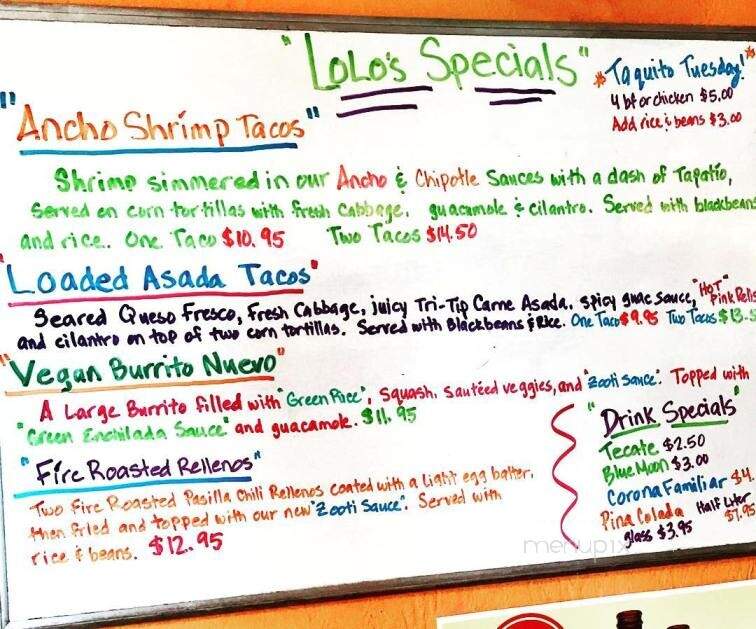 "LoLo's Specials"
*Taquito Tuesday!*
4 bf or chicken $5.00
Add rice & beans $3.00
"Ancho Shrimp Tacos"
Shrimp simmered in our Ancho & Chipotle Sauces with a dash of Tapatío,
Served on corn tortillas with fresh cabbage, guacamole & cilantro. Served with blackbeans
and rice.. One Taco $10.95 Two Tacos $14.50
"Loaded Asada Tacos"
Seared Queso Fresco, Fresh Cabbage, juicy Tri-Tip Carne Asada, spicy guac sauce, "HOT" Pink
and cilantro on top of two corn tortillas. Served with Blackbeans & Rice. One Taco $9.95 Two Tacos
"Vegan Burrito Nuevo"
A Large Burrito filled with "Green Rice", Squash, Sautéed veggies, and "Zooti Sauce". Topped with
"Green Enchilada Sauce" and guacamole. $11.95
"Fire Roasted Rellenos"
Two Fire Roasted Pasilla Chili Rellenos coated with a light egg batter,
then fried and topped with our new "Zooti Sauce". Served with
rice & beans. $12.95
"Drink Specials"
Tecate $2.50
Blue Moon $3.00
Corona Familiar $4.
Pina Colada Half Liter $7.95
glass $3.95
menupix